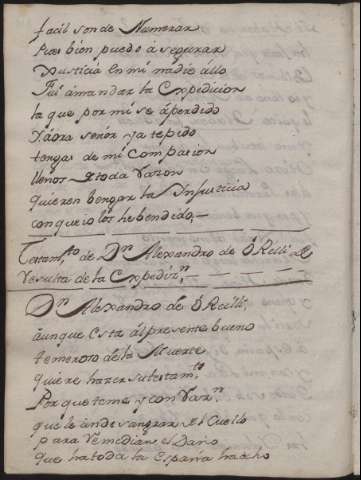 facil son de Numerar
Pues bien puedo ásegurar
Justicia en mi nadie allo
Fui ámandar la Expedicion
la que por mi se áperdido
Yáora señor ya tepido
tengas de mi Compacion
llenos de toda Razon
quieren bengar la Injusticia
con que io los he bendido,—
Testam.to de D.n Alexandro de ÓReilli de
Resulta de la Expediz.n
D.n Alexandro de ÓReilli,
áunque Esta álpresente bueno
temeroso de la Muerte
quiere hazer sutestam.to
Porque teme, y con Raz.n
que le ande sangrar el Cuello
para Remediar el Daño
que ha toda la España hecho